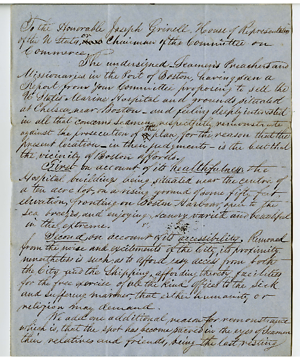 To the Honorable Joseph Grinell, House of Representatives
of the U. States, or Chairman of the Committee on
Commerce,
The undersigned Seamen's Preachers and
Missionaries in the Port of Boston, having seen a
Report from Your Committee proposing to sell the
U. States Marine Hospital and grounds situated
at Chelsea near Boston and feeling deeply interested
in all that concerns Seamen respectfully remonstrate
against the prosecution of the plan for the reason that the
present location in their judgments is the best that
the vicinity of Boston affords.
First on account of its healthfulness the
Hospital buildings being situated near the center of
a ten acre lot, on a rising ground
elevation, fronting on Boston Harbor, open to the
sea breezes, and enjoying scenery varied and beautiful
in the extreme.
Second, on account of its accessibility. Removed
from the noise and excitements of the City, its proximity
nevertheless is such as to afford easy access from both
the City and the Shipping, affording thereby facilities
for the free exercise of all the kind offices to the sick
and suffering mariner, that either humanity, or
religion may demand.
We add one additional reason for our remonstrance
which is, that the spot has become sacred in the eyes of Seamen
their relatives and friends, being the last resting